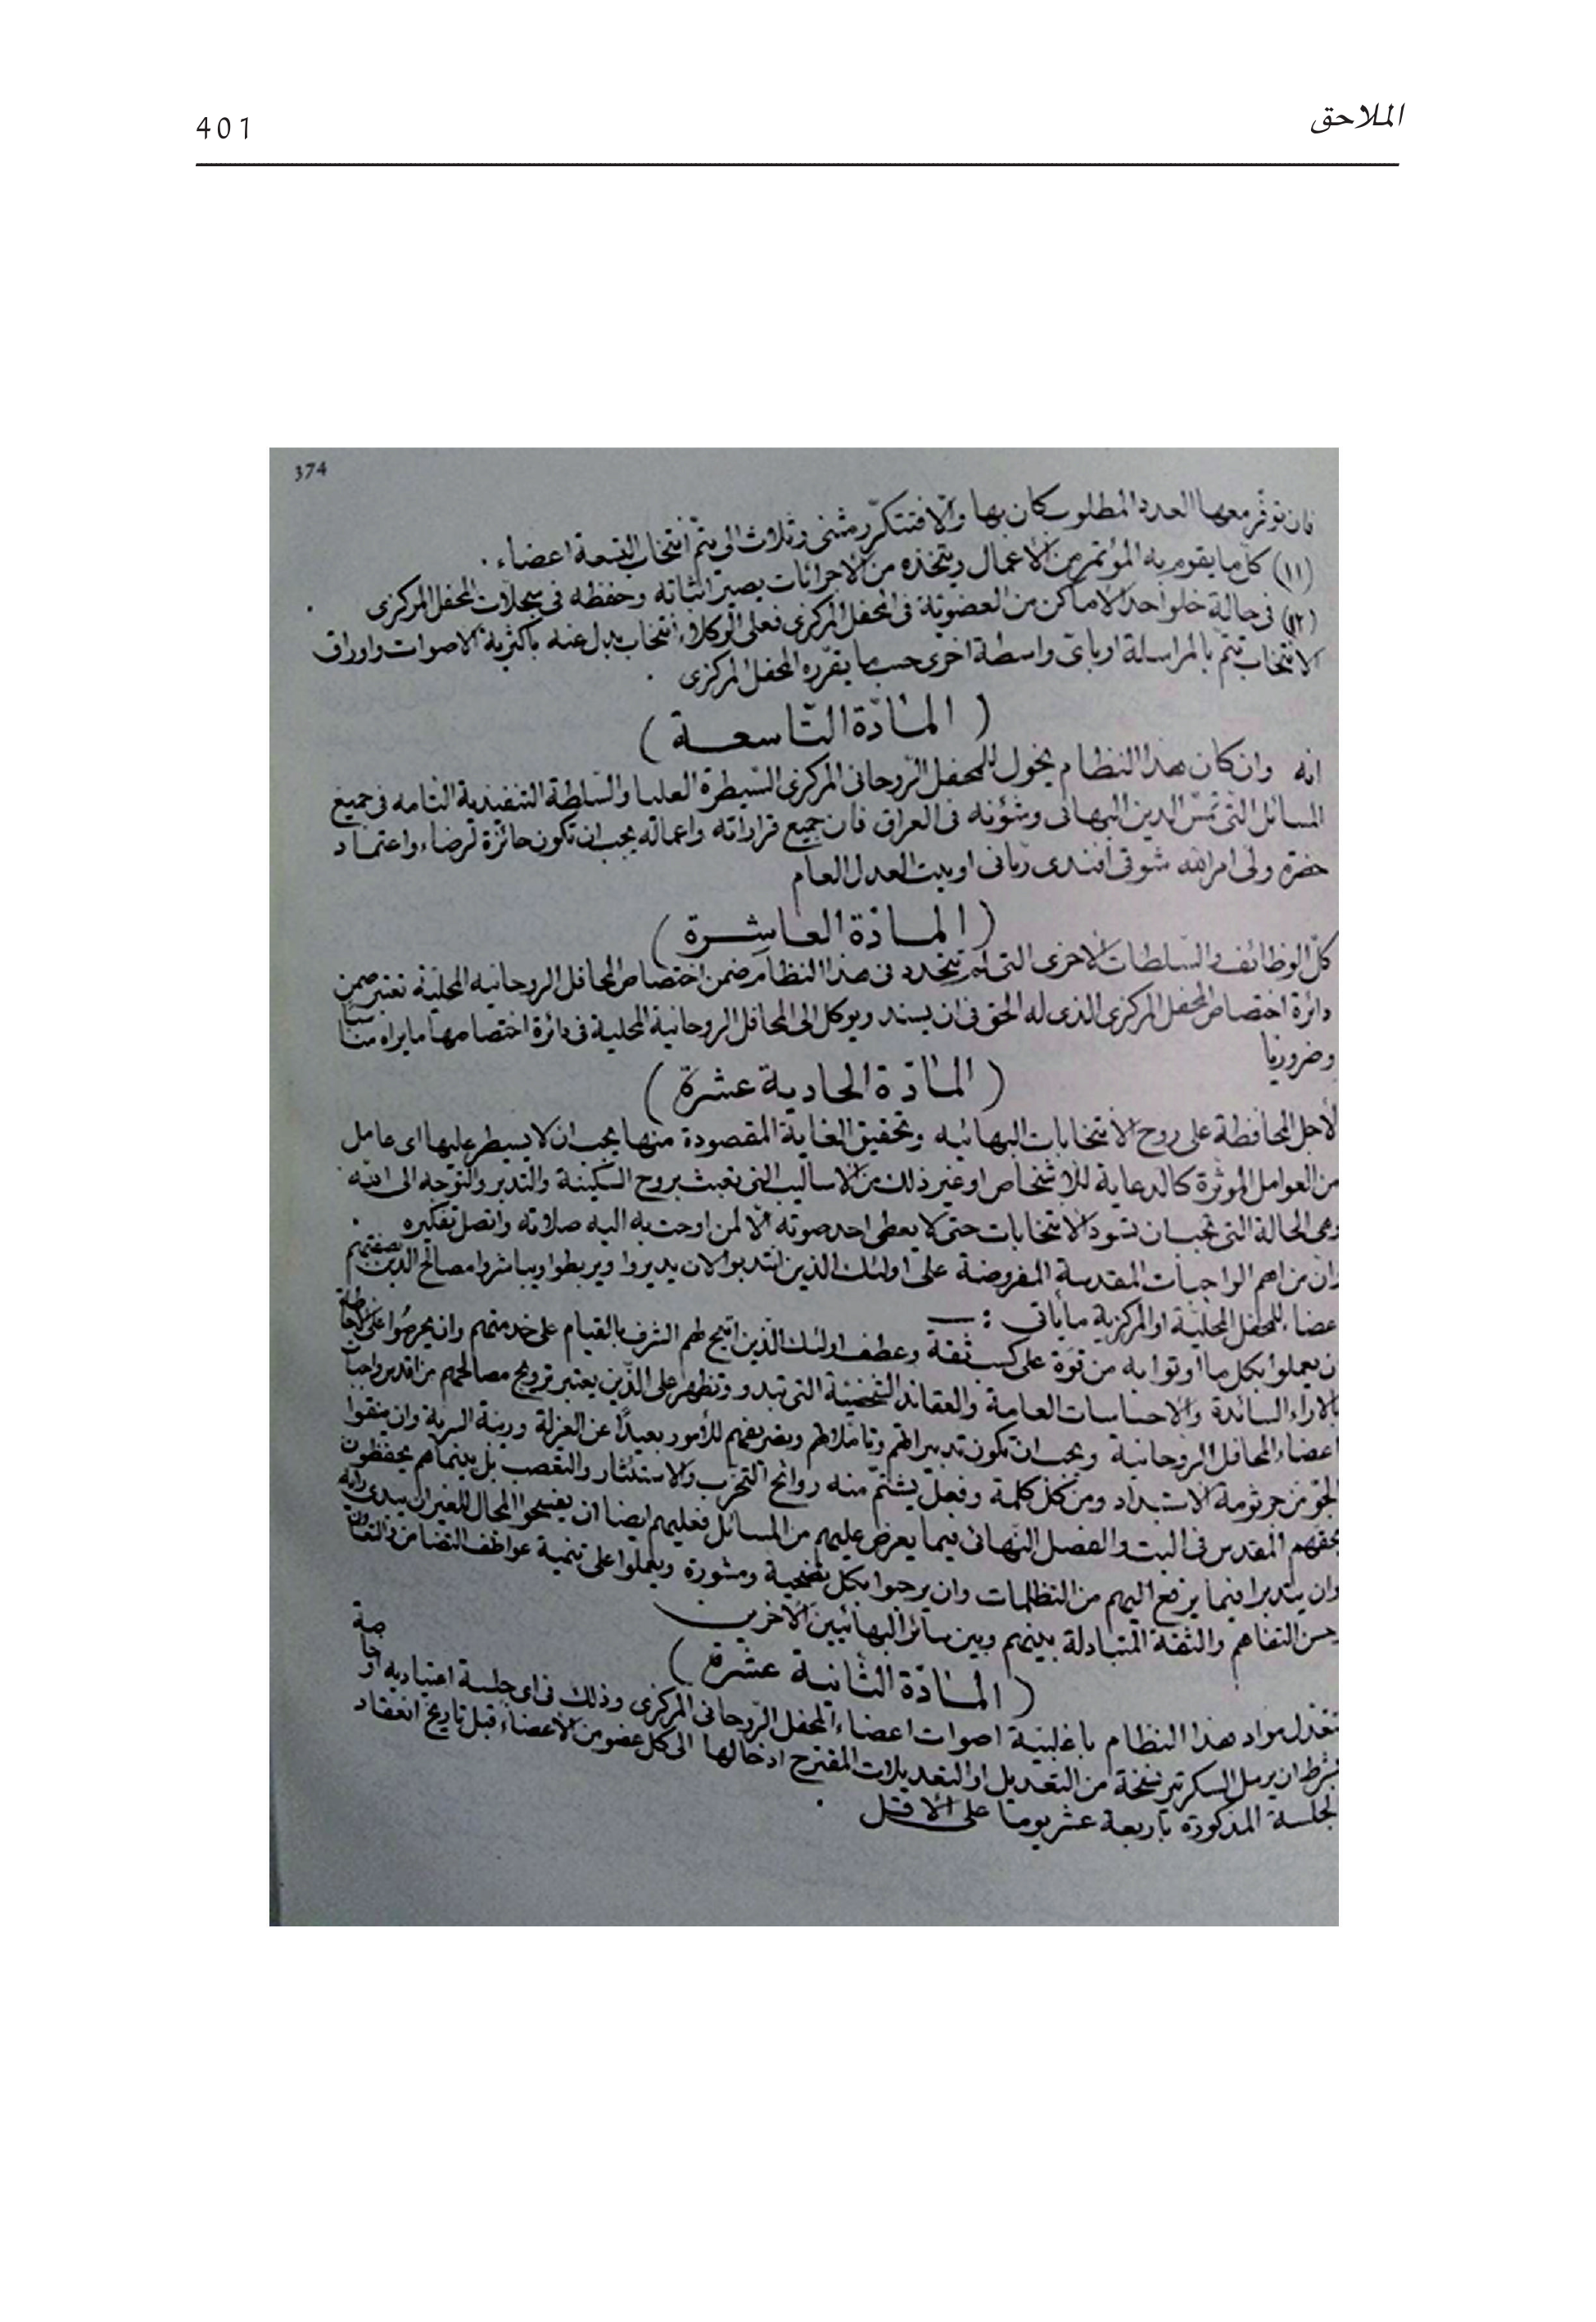 الملاحق
401
374
فان توفر معها العدد المطلوب كان بها والا فتتكرّر مثنى وثلاث الى يتمّ انتخاب التسعة اعضاء ٠
(١١) كلّ ما يقوم به المؤتمر من الاعمال ويتخذه من الاجرائات يصير اثباته وحفظه فى سجلات المحفل المركزى ٠
(١٢) فى حالة خلو احد الاماكن من العضوية فى المحفل المركزى فعلى الوكلاء انتخاب بدل عنه باكثرية الاصوات واوراق
الانتخاب تتمّ بالمراسلة او باىّ واسطة اخرى حسب ما يقرّره المحفل المركزى ٠
( المادّة التّاسعة )
انه وان كان هذا النظام يخول للمحفل الرّوحانى المركزى السّيطرة العليا والسّلطة التنفيذية التامه فى جميع
المسائل التى تمسّ الدين البهائى وشؤنه فى العراق فان جميع قراراته واعماله يجب ان تكون حائزة لرضاء واعتماد
حضرة ولى امر الله شوقى أفندى ربّانى او بيت العدل العام
( المادّة العاشِرة )
كلّ الوظائف والسّلطات الاخرى التى لم تتحدد فى هذا النظام ضمن اختصاص المحافل الروحانيه المحليّة تعتبر ضمن
دائرة اختصاص المحفل المركزى الذى له الحق فى ان يسند ويوكل الى المحافل الروحانية المحلية فى دائرة اختصاصها ما يراه مناسبًا
وضروريا
( المادّة الحادية عشرة )
لأجل المحافظة على روح الانتخابات البهائيه وتحقيق الغاية المقصودة منها يجب ان لا يسيطر عليها اى عامل
من العوامل المؤثرة كالدعاية للأشخاص او غير ذلك من الاساليب التى تعبث بروح السّكينة والتدبر والتوجه الى الله
وهى الحالة التى يجب ان تسود الانتخابات حتى لا يعطى احد صوته الّا لمن اوحت به اليه صلاته واتصل تفكيره ٠
وان من اهم الواجبات المقدسة المفروضة على اولئك الذين انتدبوا لان يديروا ويربطوا ويباشروا مصالح الدين بصفتهم
عضاء للمحفل المحليّة او المركزية ما يأتى : ـــ
ن يعملوا بكل ما اوتوا به من قوّة على كسب ثقة وعطف اولئك الذين اتيح لهم الشرف بالقيام على خدمتهم وان يحرصوا على الاحاطة
بالآراء السائدة والاحساسات العامة والعقائد الشخصيّة التى تبدو وتظهر على الذّين يعتبر ترويج مصالحهم من اقدس واجبات
اعضاء المحافل الروحانية ويجب ان تكون تدبيراتهم وتأملاتهم وتصريفهم للأمور بعيدًا عن العزلة وريبة السرية وان ينقوا
الجوّ من جرثومة الاستبداد ومن كل كلمة وفعل يشتمّ منه روائح التحزّب والاستئثار والتعصب بل بينما هم يحتفظون
بحقهم المقدس فى البت والفصل النّهائى فيما يعرض عليهم من المسائل فعليهم ايضا ان يفسحوا المجال للغير ان يبدى رايه
وان يتدبرا فيما يرفع اليهم من التظلمات وان يرحبوا بكل نصيحة ومشورة ويعملوا على تنمية عواطف التضامن والتعاون
وحسن التفاهم والثقة المتبادلة بينهم وبين سائر البهائيين الآخرين
( المادّة الثّانية عشرة )
تتعدل مواد هذا النظام باغلبية اصوات اعضاء المحفل الرّوحانى المركزى وذلك فى اى جلسة اعتياديه او خاصة
بشرط ان يرسل السكرتير نسخة من التعديل او التعديلات المقترح ادخالها الى كل عضو من الاعضاء قبل تاريخ انعقاد
لجلسة المذكورة باربعة عشر يوما على الاقل ٠